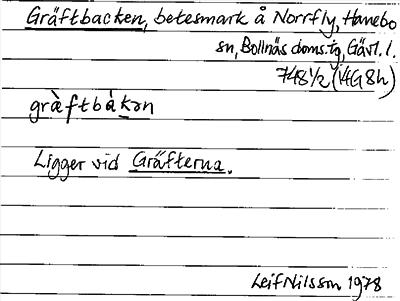 Gräftbacken, betesmark å Norrfly, Hanebo
sn, Bollnäs doms.tg, Gävl. l.
748 1/2 (14G8h)
grὰftbákən
Ligger vid Gräfterna.
Leif Nilsson 1978